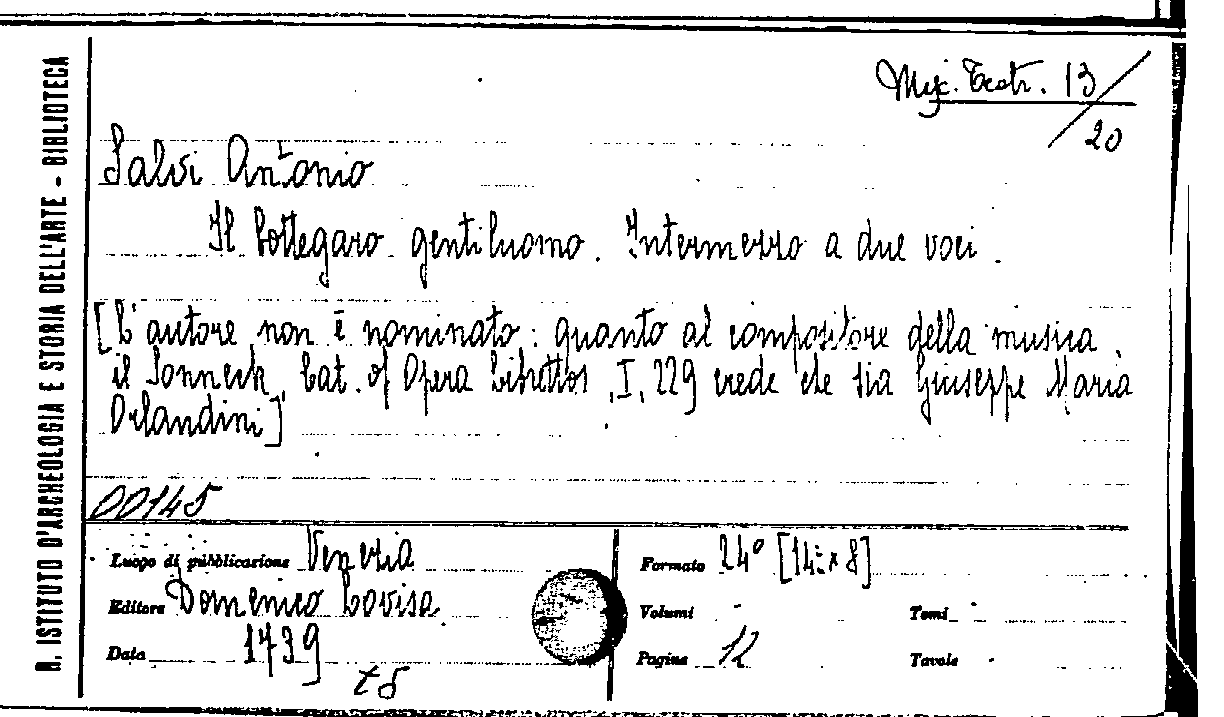 R. ISTITUTO D'ARCHEOLOGIA E STORIA DELL'ARTE - BIBLIOTECA
Teatr. 13/20
Salvi Antonio
Il bottegaro gentiluomo. Intermezzo a due voci.
[L'autore non è nominato: quanto al compositore della musica,
il Sonneck, Cat. of Opera Librettos, I, 229 crede che sia Giuseppe Maria
Orlandini]
00145
Luogo di pubblicazione Venezia
Editore Domenico Lovisa
Data 1739
Formato 24° [14 x 8]
Volumi
Tomi
Pagine 12
Tavole